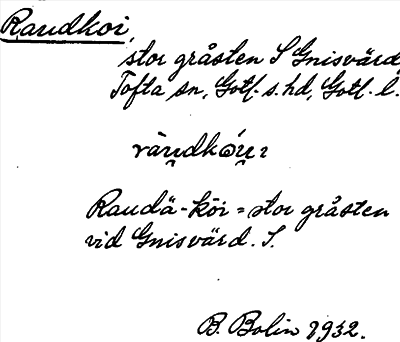 Raudkoi,
stor gråsten S Gnisvärd
Tofta sn, Gotl. s. hd, Gotl. l.
Raudä-köi = stor gråsten
vid Gnisvärd. S.
B. Bolin 1932.